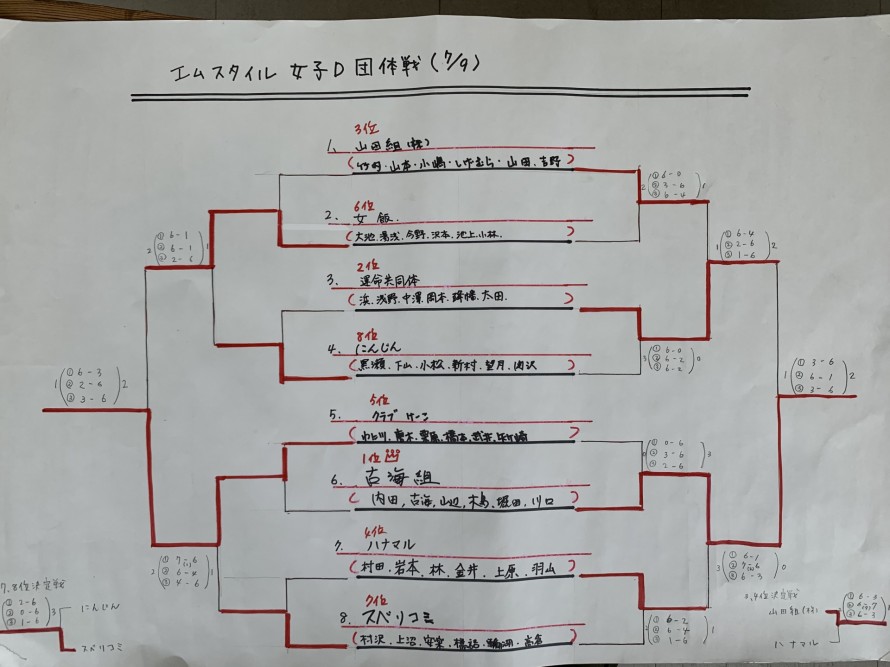 エムスタイル 女子D 団体戦 (7/9)
3位
1、山田組(株)
(竹内・山本・小嶋・しげむら・山田、吉野)
6位
2. 女飯.
(大地.湯浅.今野.沢本.池上.小林.)
2位
3. 運命共同体
(浜.浅野.中澤.岡本.太田.)
8位
4. にんじん
(黒瀬.下山.小松.新村.望月.内沢)
5位
5. クラブ
1位
6. 古海組
(内田,古海,山辺,木島,堀田,川口)
4位
7. ハナマル
(村田、岩本、林、金井、上原、羽山)
7位
8. スペリコミ
(村沢、上沼、
2 (① 6-1 ② 6-1 ③ 2-6) 1
1 (① 6-3 ② 2-6 ③ 3-6) 2
2 (① 7 6 ② 6-4 ③ 4-6) 1
2 (① 6-0 ② 3-6 ③ 6-4) 1
1 (① 6-4 ② 2-6 ③ 1-6) 2
3 (① 6-0 ② 6-2 ③ 6-2) 0
1 (① 3-6 ② 6-1 ③ 3-6) 2
0 (① 0-6 ② 3-6 ③ 2-6) 3
3 (① 6-1 ② 7 6 ③ 6-3) 0
2 (① 6-2 ② 6-4 ③ 1-6) 1
7.8位決定戦
(① 2-6 ② 0-6 ③ 1-6) 3
にんじん
スペリコミ
3,4位決定戦
山田組(株)
ハナマル
① 6-0
③ 6-3